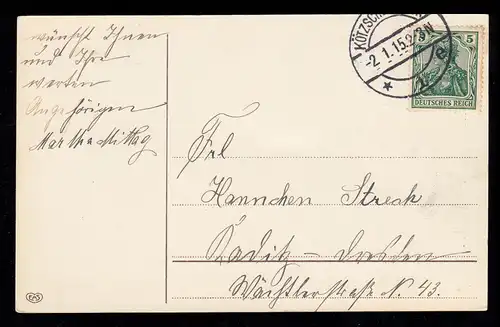 wünscht Ihnen
und Ihre
werten
Angehörigen
Martha Mittag
KÖTZSCH
-2.1.15.2-3N
5
DEUTSCHES REICH
Frl
Hannchen Streck
Kaditz-Dresden
Wächtlerstraße N. 43.